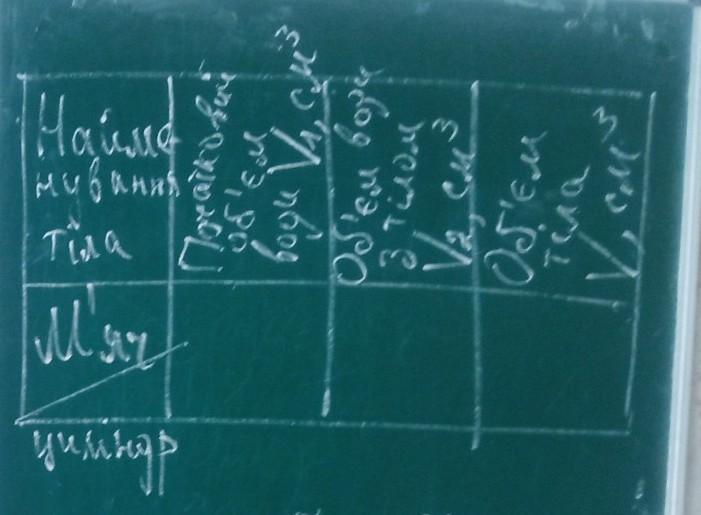 Найме
нування
тіла
Початковий
об'єм
води V₁, см³
Об'єм води
з тілом
V₂, см³
Об'єм
тіла
V, см³
М'яч
циліндр